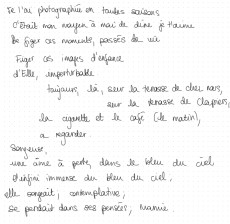 Je l'ai photographiée en toutes saisons
C'était mon moyen à moi de dire je t'aime
De figer ces moments, passés de vie
Figer ces images d'enfance
d'Elle, imperturbable
toujours, là, sur la terrasse de chez nous,
sur la terrasse de Clapiers,
la cigarette et le café (le matin),
a regarder.
Songeuse,
une âme à perte, dans le bleu du ciel
L'infini immense du bleu du ciel,
elle songeait, contemplative,
se perdait dans ses pensées, Mamie.